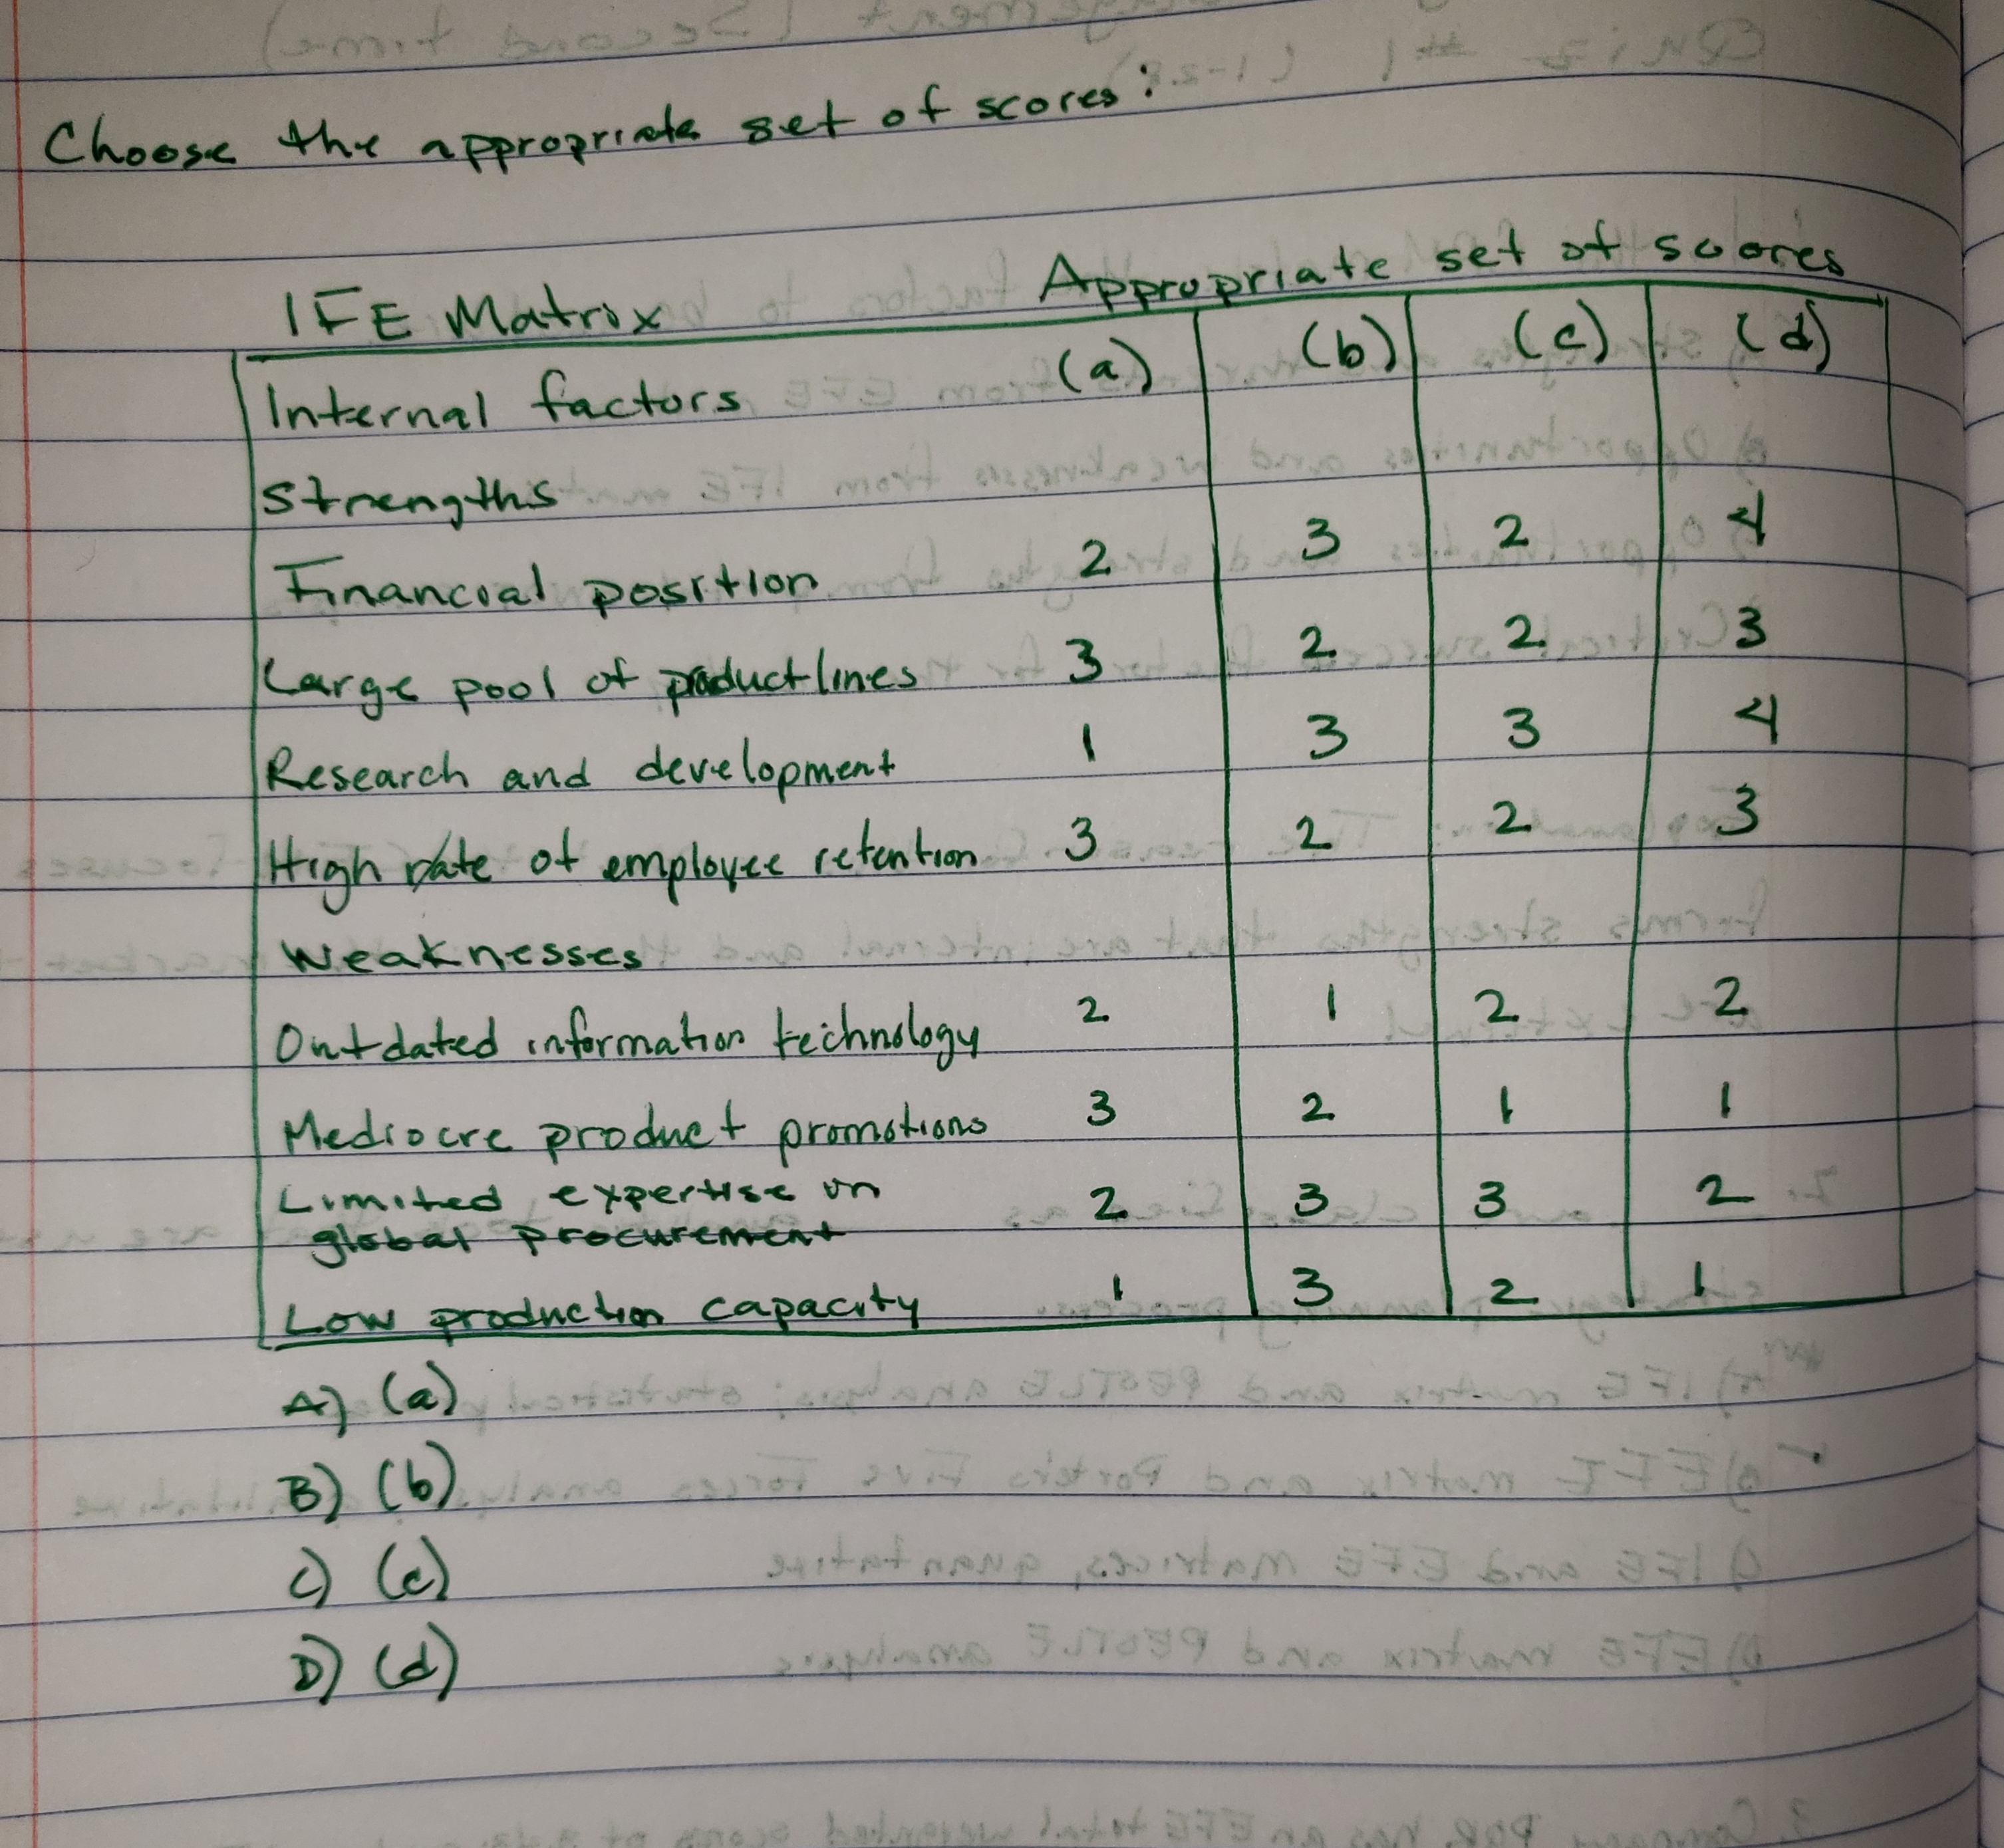 Choose the appropriate set of scores:
IFE Matrix Appropriate set of scores
Internal factors (a) (b) (c) (d)
Strengths
Financial position 2 3 2 4
Large pool of product lines 3 2 2 3
Research and development 1 3 3 4
High rate of employee retention 3 2 2 3
Weaknesses
Outdated information technology 2 1 2 2
Mediocre product promotions 3 2 1 1
Limited expertise in 2 3 3 2
global procurement
Low production capacity 1 3 2 1
A) (a)
B) (b)
C) (c)
D) (d)